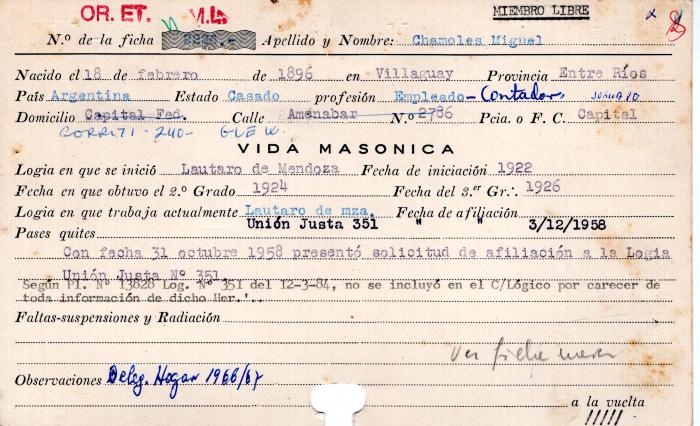 OR. ET. M.L. MIEMBRO LIBRE
N.º de la ficha Apellido y Nombre: Chamoles Miguel
Nacido el 18 de febrero de 1896 en Villaguay Provincia Entre Ríos
País Argentina Estado Casado profesión Empleado - Contador.
Domicilio Capital Fed. Calle Amenabar N.º 2786 Pcia. o F. C. Capital
CORRITI - 240 - GLEW.
VIDA MASONICA
Logia en que se inició Lautaro de Mendoza Fecha de iniciación 1922
Fecha en que obtuvo el 2.º Grado 1924 Fecha del 3.er Gr∴ 1926
Logia en que trabaja actualmente Lautaro de mza. Fecha de afiliación
Unión Justa 351 " " 3/12/1958
Pases quites
Con fecha 31 octubre 1958 presentó solicitud de afiliación a la Logia
Unión Justa Nº 351
Según Pl. Nº 13828 Log. Nº 351 del 12-3-84, no se incluyó en el C/Lógico por carecer de
toda información de dicho Her.'..
Faltas-suspensiones y Radiación
Ver fiche
Observaciones Deleg. Hogar 1966/67
a la vuelta
/////